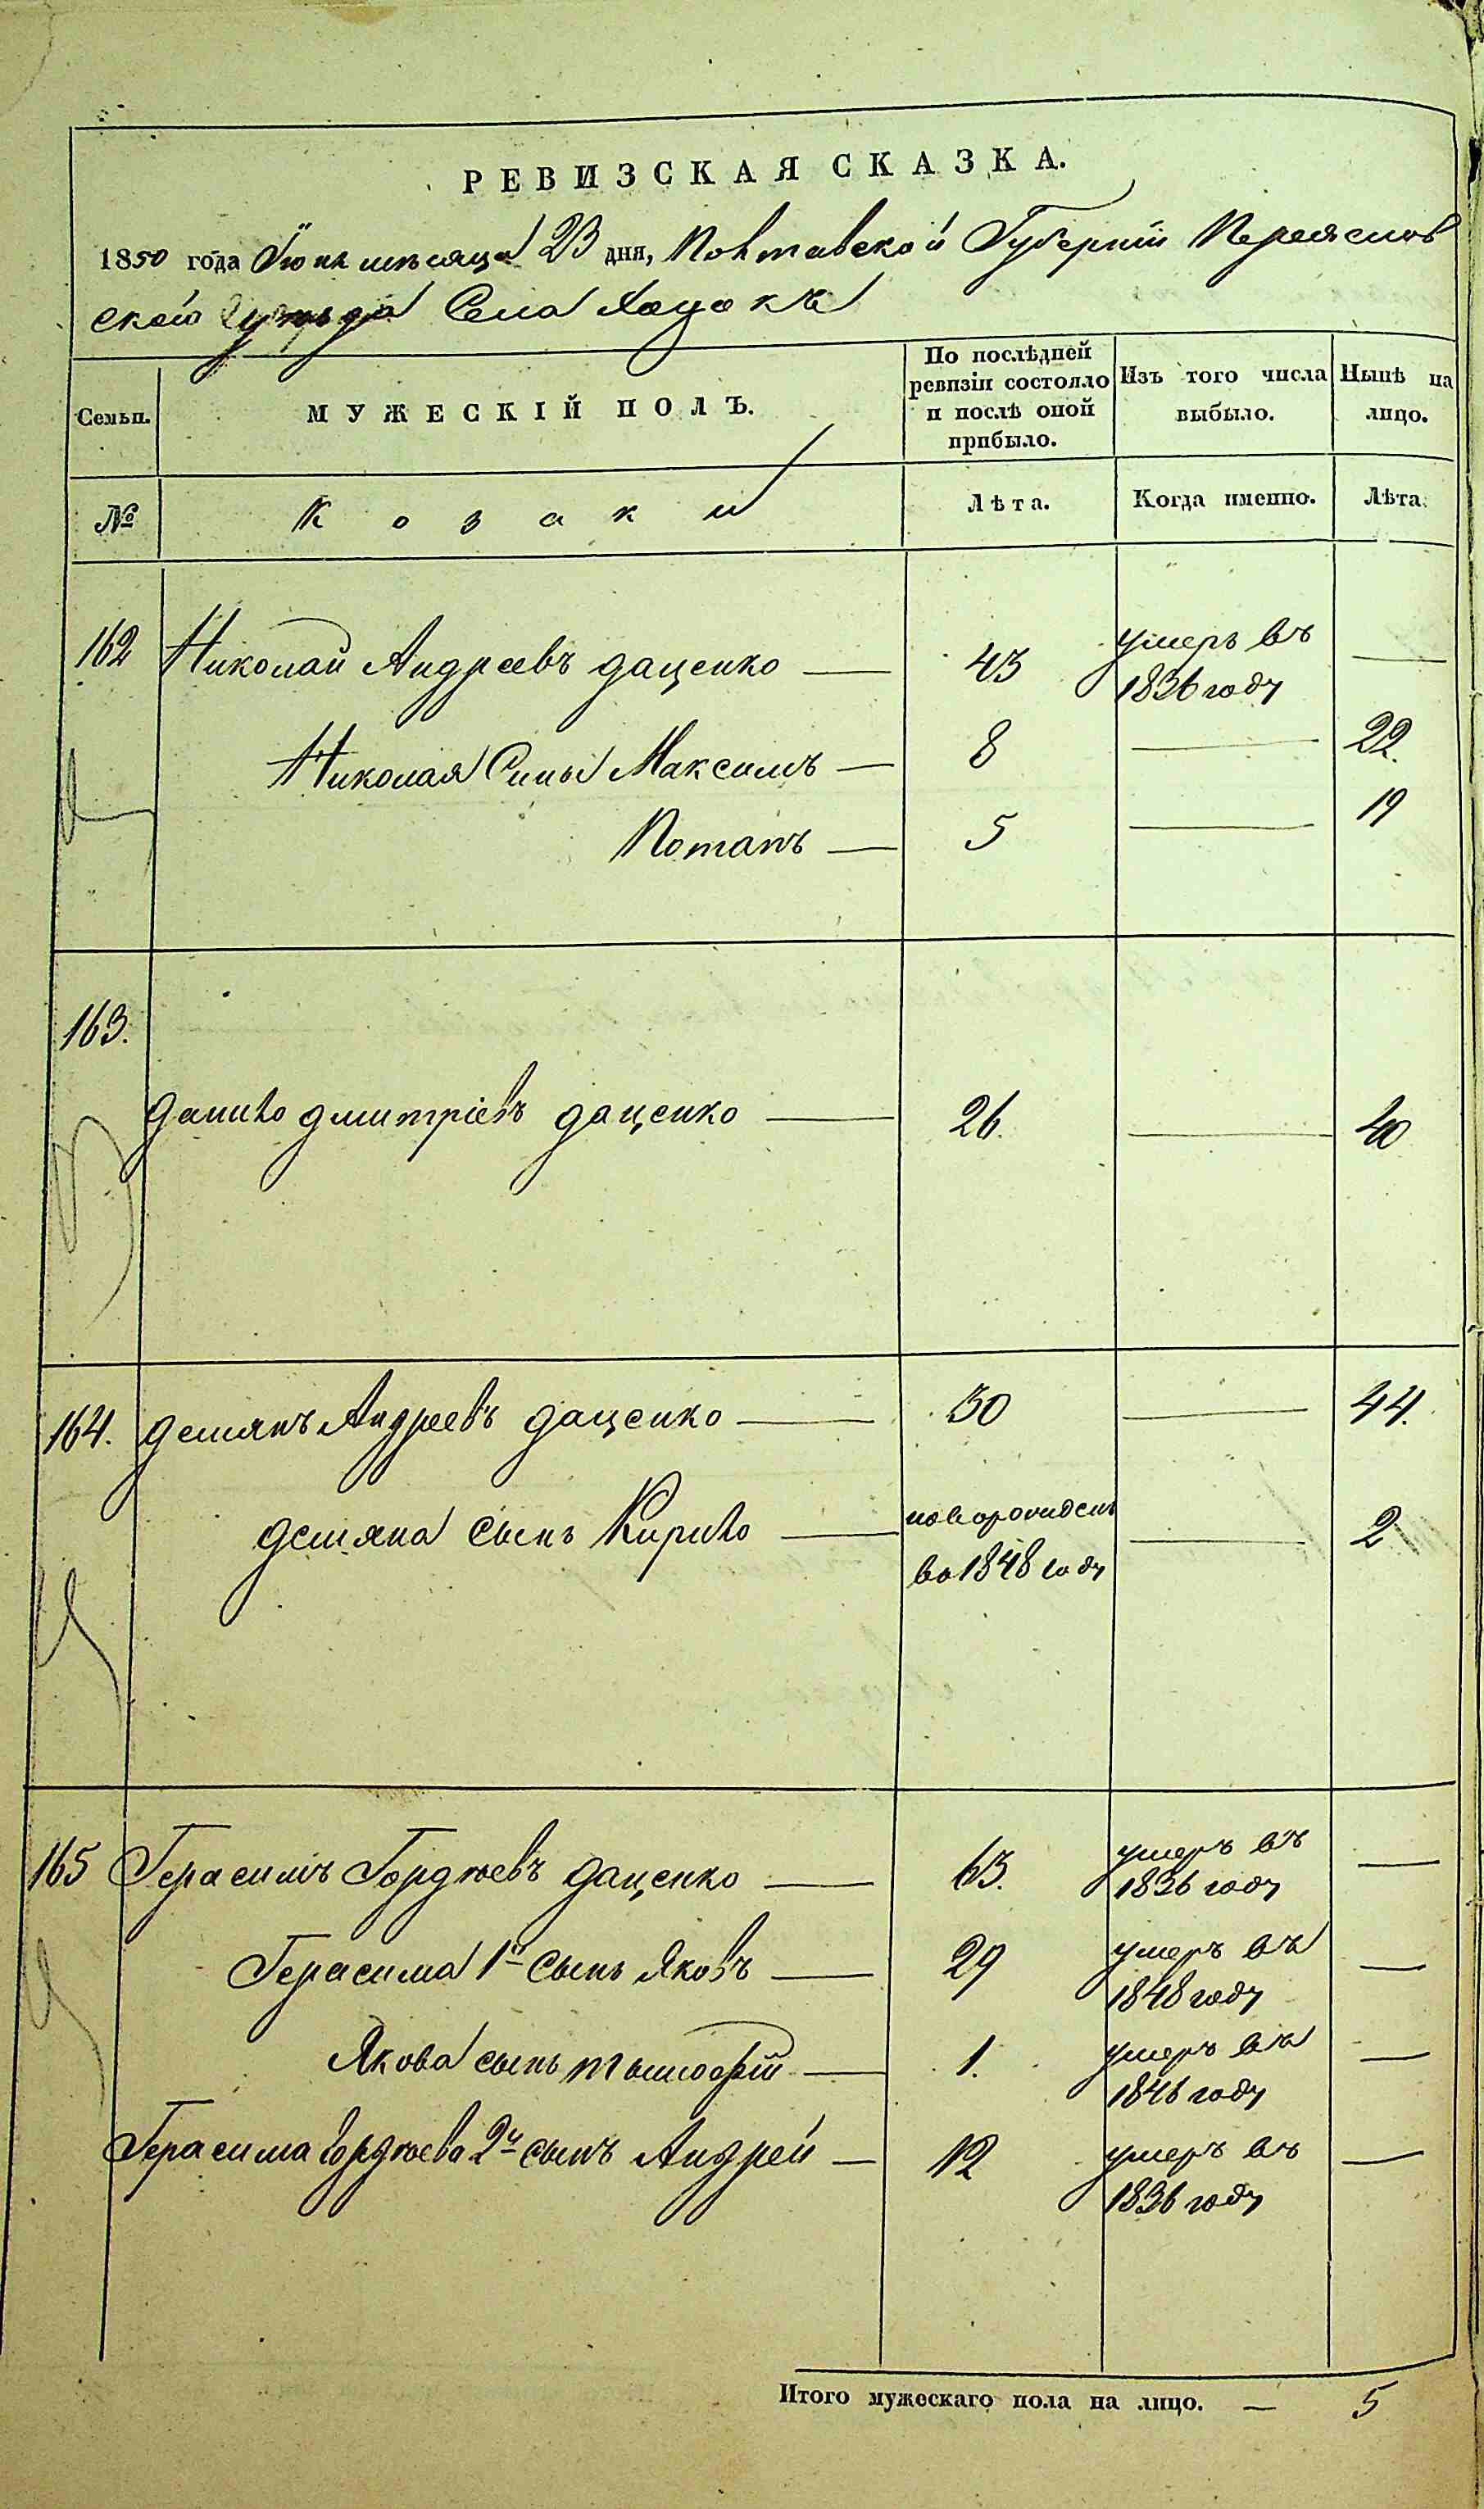 РЕВИЗСКАЯ СКАЗКА.
1850 года Июня мѣсяца 23 дня, Полтавской Губерніи Переяслов
ской уѣзда Села Хоцокъ
Семьи. МУЖЕСКІЙ ПОЛЪ. По послѣдней ревизіи состояло и послѣ оной прибыло. Изъ того числа выбыло. Нынѣ на лицо.
№ Козаки Лѣта. Когда именно. Лѣта.
162 Николай Андреевъ даценко — 43 умеръ въ —
1836 году
Николая Сины Максимъ — 8 — 22.
Потапъ — 5 — 19
163.
данило дмитріевъ даценко — 26. — 40
164. демянъ Андреевъ даценко — 30 — 44.
демяна сынъ Кирило — новорожденъ — 2
во 1848 году
165 Герасимъ Гордѣевъ даценко — 63. умеръ въ —
1836 году
Герасима 1й сынъ Яковъ — 29 умеръ въ —
1848 году
Якова сынъ тымофій — 1. умеръ въ —
1846 году
Герасима Гордѣева 2й сынъ Андрей — 12 умеръ въ —
1836 году
Итого мужескаго пола на лицо. — 5